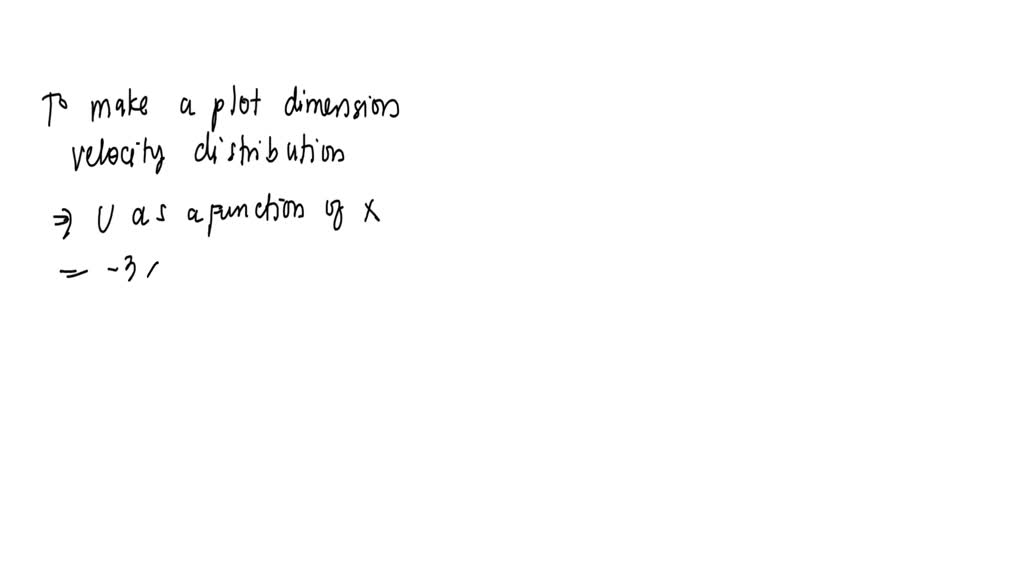 To make a plot dimension
velocity distribution
⇒ U as a function of x
= -3 (